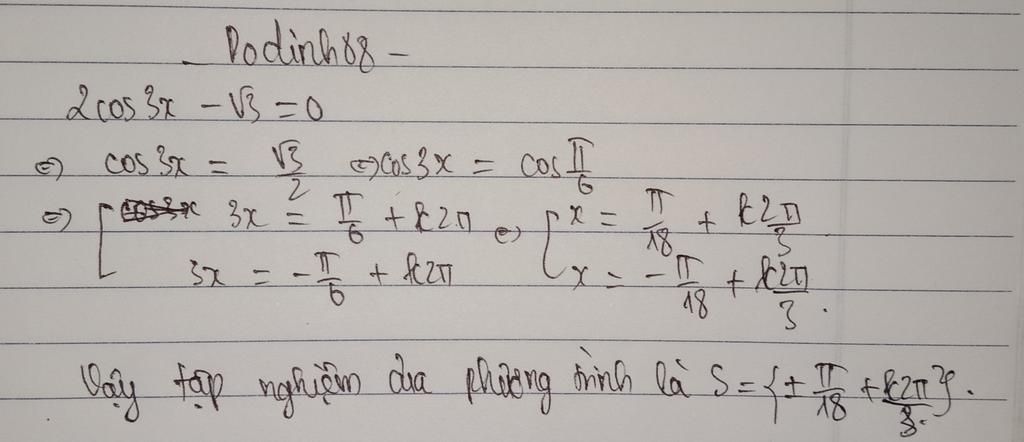 Dodinh88 -
2cos3x - √3 = 0
⇔ cos3x = √3/2 ⇔ cos3x = cos π/6
⇔ [ 3x = π/6 + k2π ⇔ [ x = π/18 + k2π/3
3x = -π/6 + k2π x = -π/18 + k2π/3.
Vậy tập nghiệm của phương trình là S = {± π/18 + k2π/3}.